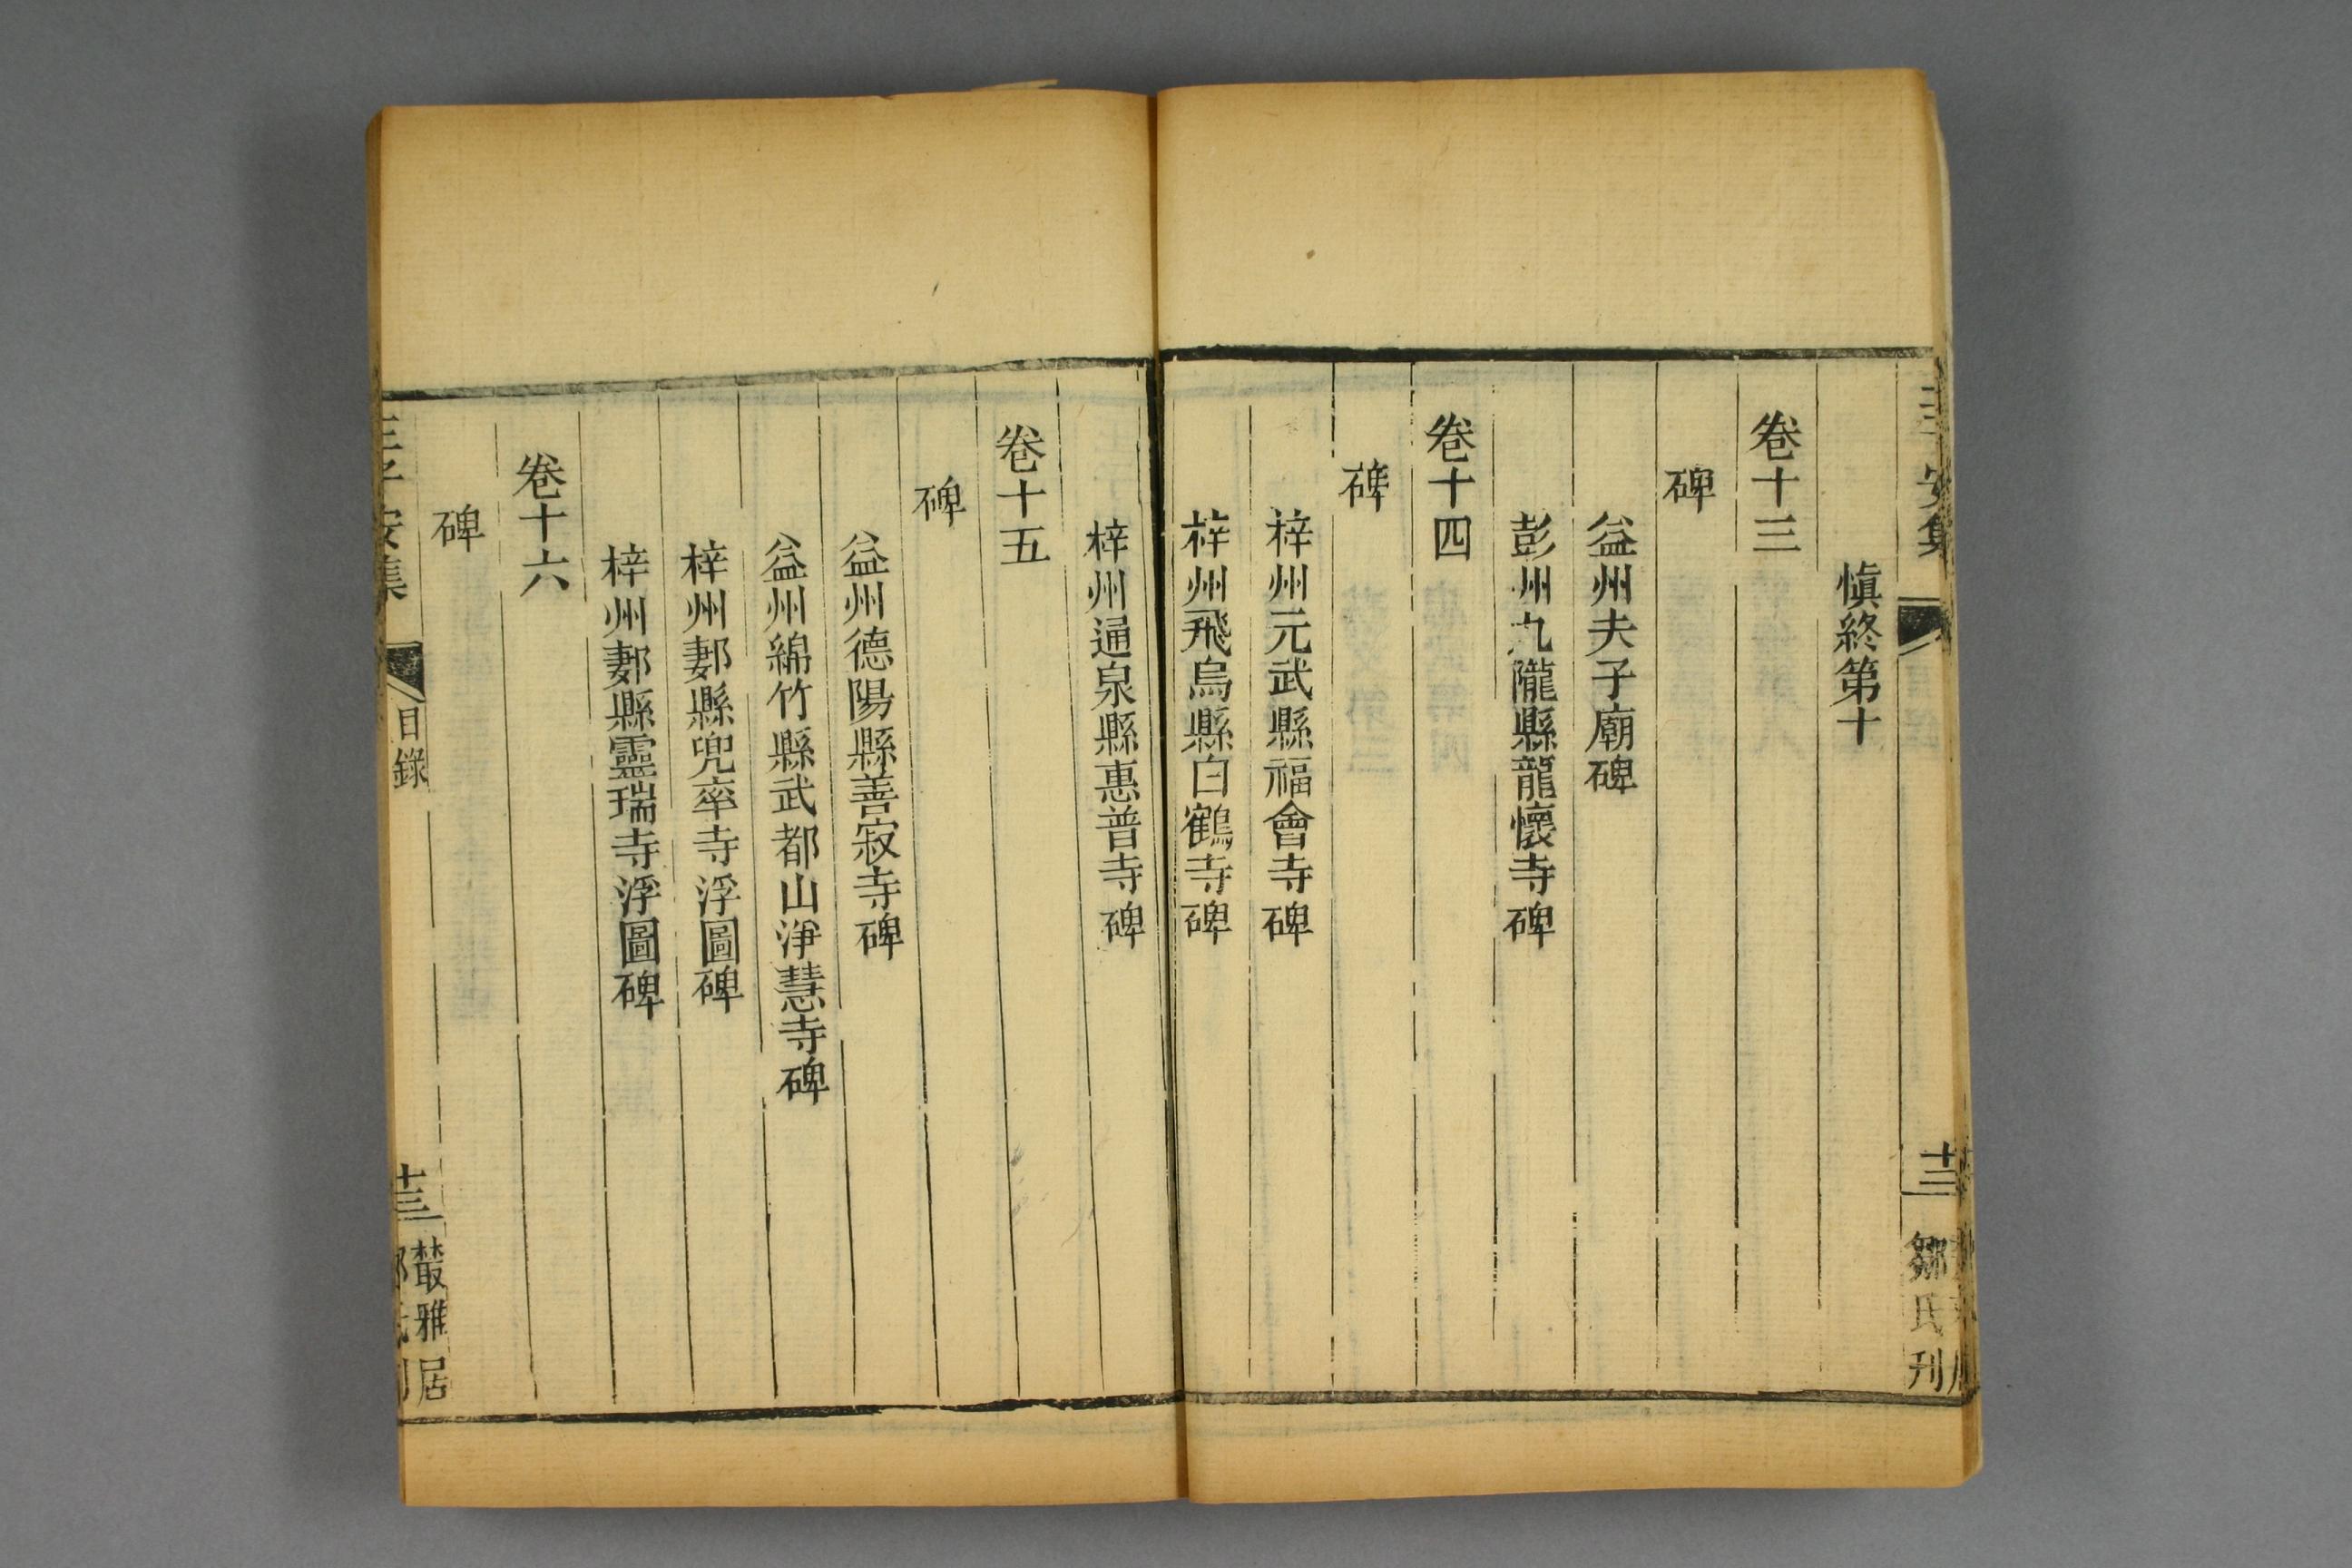 慎終第十
卷十三
碑
益州夫子廟碑
彭州九隴縣龍懷寺碑
卷十四
碑
梓州元武縣福會寺碑
梓州飛烏縣白鶴寺碑
梓州通泉縣惠普寺碑
卷十五
碑
益州德陽縣善寂寺碑
益州綿竹縣武都山淨慧寺碑
梓州郪縣兜率寺浮圖碑
梓州郪縣靈瑞寺浮圖碑
卷十六
碑
王子安集
目錄
十三
叢雅居
鄒氏刊